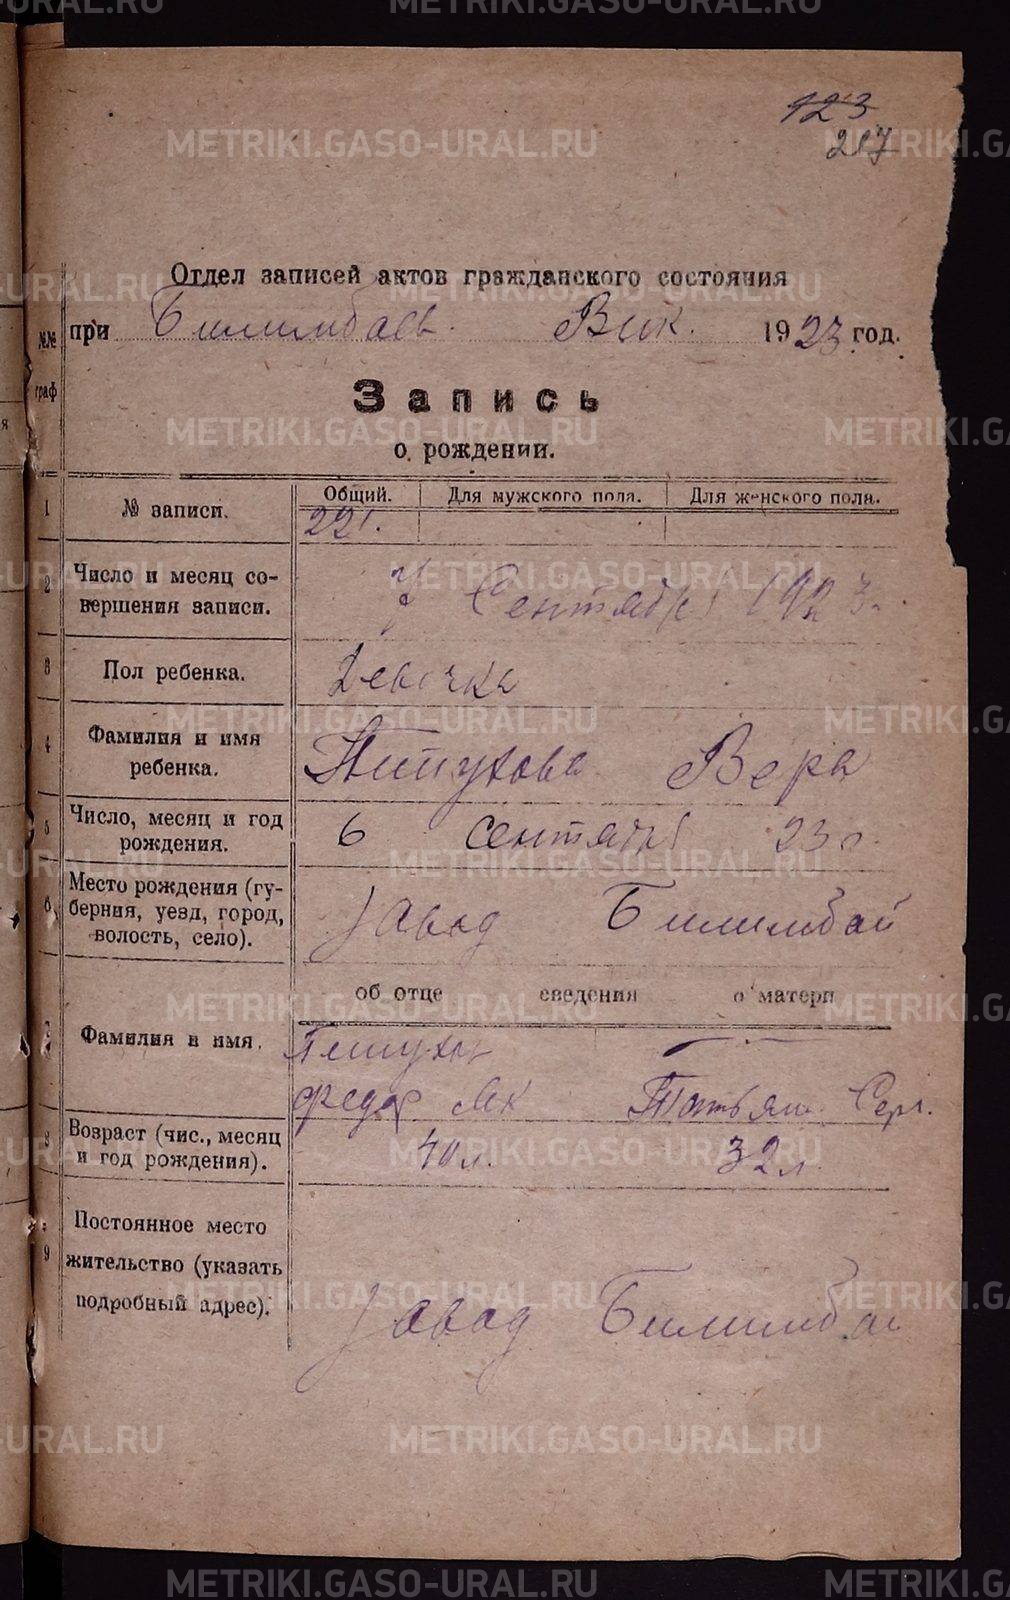 123
217
Отдел записей актов гражданского состояния
при Билимбаев. Вик. 1923 год.
№№ граф
Запись
о рождении.
1 № записи. Общий. Для мужского пола. Для женского пола.
221.
2 Число и месяц со-
вершения записи. 7 Сентября 1923 г.
3 Пол ребенка. Девочка
4 Фамилия и имя
ребенка. Питухова Вера
5 Число, месяц и год
рождения. 6 сентября 23 г.
6 Место рождения (гу-
берния, уезд, город,
волость, село). завод Билимбай
об отце сведения о матери
7 Фамилия и имя. Петухов
Федор Ак Татьяна Серг.
8 Возраст (чис., месяц
и год рождения). 40 л. 32 л.
9 Постоянное место
жительство (указать
подробный адрес). завод Билимбай
METRIKI.GASO-URAL.RU